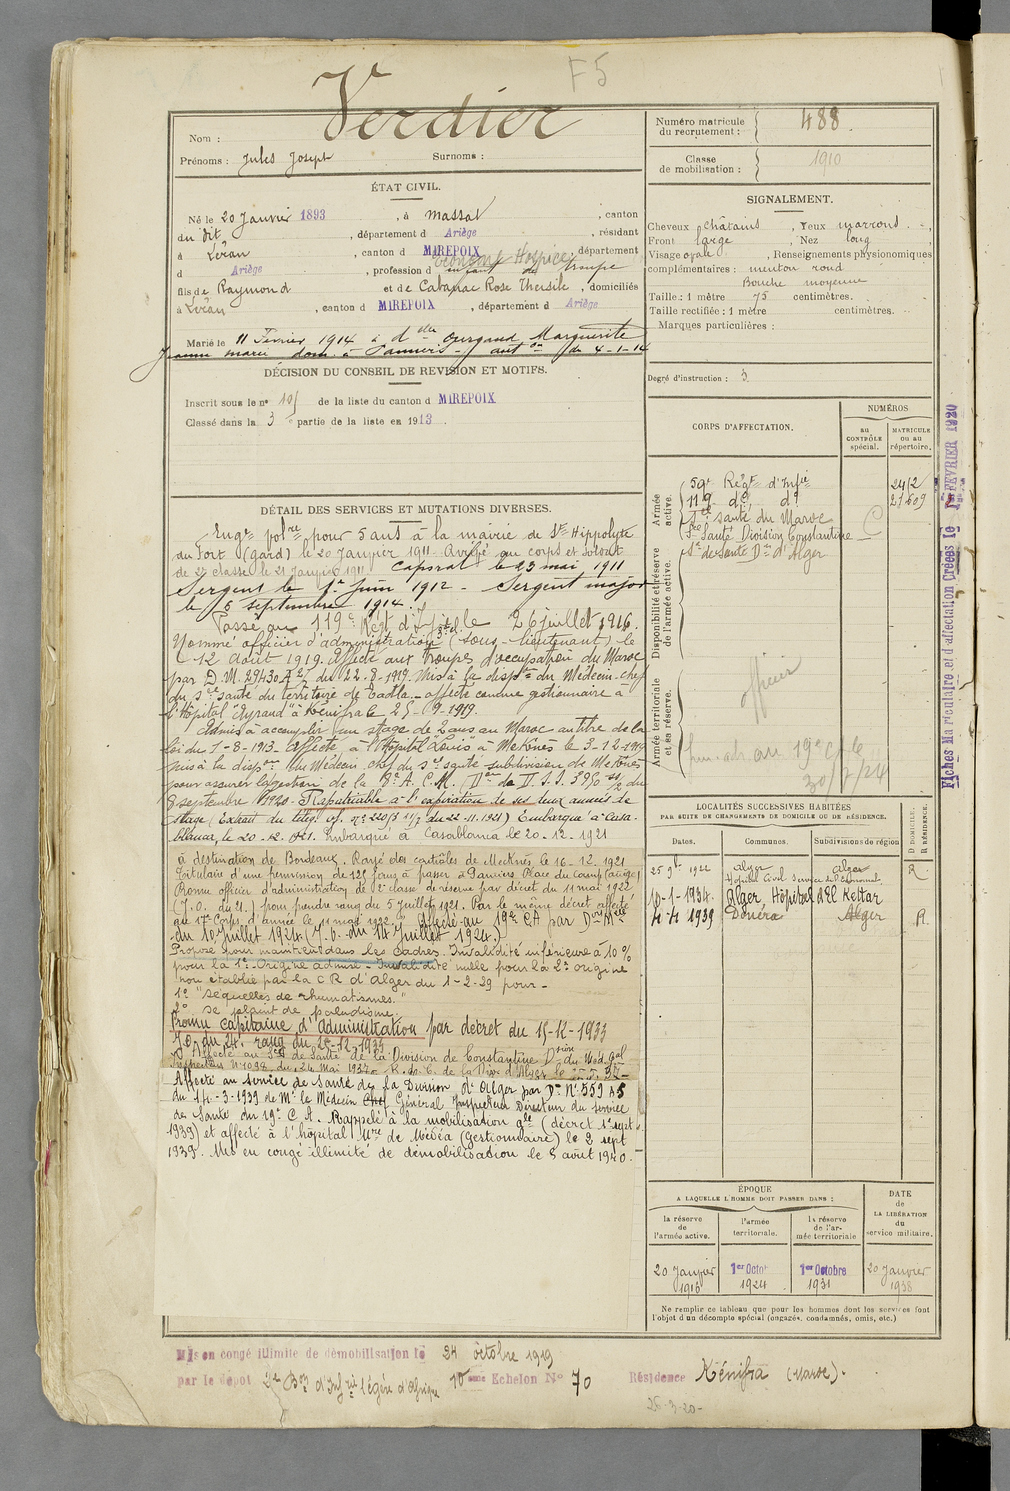 F5
Nom : Verdier
Prénoms : Jules Joseph Surnoms :
Numéro matricule du recrutement : 488.
Classe de mobilisation : 1910
ÉTAT CIVIL.
Né le 20 Janvier 1893, à Massat, canton
du dit, département d Ariège, résidant
à Léran, canton d MIREPOIX, département
Econome Hospice
d Ariège, profession d enfant de troupe
fils de Raymond et de Cabanac Rose Thersile, domiciliés
à Léran, canton d MIREPOIX, département d Ariège
Marié le 11 Février 1914 à dlle Ourgaud Marguerite
Jeanne marie dom. à Pamiers - auton du 4-1-14
SIGNALEMENT.
Cheveux châtains, Yeux marrons.
Front large, Nez long
Visage ovale, Renseignements physionomiques
complémentaires : menton rond
Bouche moyenne
Taille : 1 mètre 75 centimètres.
Taille rectifiée : 1 mètre centimètres.
Marques particulières :
Degré d'instruction : 3
DÉCISION DU CONSEIL DE REVISION ET MOTIFS.
Inscrit sous le n° de la liste du canton d MIREPOIX
Classé dans la 3e partie de la liste en 1913.
DÉTAIL DES SERVICES ET MUTATIONS DIVERSES.
Engé volre pour 5 ans à la mairie de St Hippolyte
du Fort (Gard) le 20 Janvier 1911 Arrivé au corps et soldat
de 2e classe le 21 Janvier 1911 Caporal le 23 mai 1911
Sergent le 1er Juin 1912 - Sergent major
le 5 septembre 1914.
Passé au 119e Régt d'Infie le 26 juillet 1916.
Nommé officier d'administration (sous-lieutenant) le
12 Août 1919. Affecté aux troupes d'occupation du Maroc
par D.M. 29430 du 22-8-1919. Mis à la dispon du Médecin-Chef
du sce santé du territoire de Tadla - affecté comme gestionnaire à
l'Hôpital "Ayrand" à Kénifra le 25-9-1919.
Admis à accomplir un stage de 2 ans au Maroc au titre de la
loi du 1-8-1913 - affecté à l'Hôpital "Louis" à Meknès le 3-12-1919
mis à la dispon du Médecin chef du sce santé subdivision de Meknès
pour assurer la gestion de la 8e A.C.M. du
8 septembre 1920 - Rapatriable à l'expiration de ses deux années de
stage (Extrait du télég. of. n° 220/3 11/3 du 22-11-1921) Embarqué à Casa-
blanca, le 20-12-1921. Embarqué à Casablanca le 20-12-1921
à destination de Bordeaux. Rayé des contrôles de Mecknès, le 16-12-1921
Titulaire d'une permission de 128 jours à passer à Pamiers Place du Camp (ariège)
Promu officier d'administration de 2e classe de réserve par décret du 11 mai 1922
(J.O. du 21) pour prendre rang du 5 Juillet 1921. Par le même décret affecté
au 17e Corps d'armée le 11 mai 1922. Affecté au 19e CA par Don Mlle
du 10 Juillet 1924 (J.O. du 14 Juillet 1924.)
Proposé pour maintenu dans les cadres. Invalidité inférieure à 10 %
pour la 1e. Origine admise - Invalidité nulle pour la 2e origine
non établie par la C R d'Alger du 1-2-29 pour -
1° "Séquelles de rhumatismes."
2° se plaint de paludisme.
Promu capitaine d'administration par décret du 15-12-1933
J.O. du 24. rang du 25-12-1933
Affecté au Sce de Santé de la Division de Constantine Dsion du Méd Gal
Inspecteur N° 1098 du 24 Mai 1937 - R. de C. de la Don d'Alger le
Affecté au service de Santé de la Division d'Alger par Dn N° 559 A5
du 14-3-1939 de Mr le Médecin Chef Général Inspecteur Directeur du service
de Santé du 19e C A. Rappelé à la mobilisation gle (décret 1er sept
1939) et affecté à l'hôpital Mre de Médéa (gestionnaire) le 2 sept
1939. Mis en congé illimité de démobilisation le 5 août 1940.
CORPS D'AFFECTATION.
NUMÉROS
au CONTRÔLE spécial.
MATRICULE ou au répertoire.
Armée active.
59e Régt d'Infie 2412
119e do do 21509
Sce santé du Maroc
Sce Santé Division Constantine C
Sce de Santé Don d'Alger
Disponibilité et réserve de l'armée active.
Armée territoriale et sa réserve.
officier
30/7/24
Fiches Matriculaire et d'affectation Créées le 1er FÉVRIER 1920
LOCALITÉS SUCCESSIVES HABITÉES
PAR SUITE DE CHANGEMENTS DE DOMICILE OU DE RÉSIDENCE.
Dates. Communes. Subdivisions de région D DOMICILE. R RÉSIDENCE.
25 9bre 1922 Alger Alger R
Hôpital Civil Service de l'Economat
10-1-1934. Alger, Hôpital d'El Kettar
4-4 1939 Douéra Alger R.
ÉPOQUE
A LAQUELLE L'HOMME DOIT PASSER DANS :
la réserve de l'armée active. l'armée territoriale. la réserve de l'armée territoriale
DATE de LA LIBÉRATION du service militaire.
20 Janvier 1916 1er Octob 1924 1er Octobre 1931 20 Janvier 1938
Ne remplir ce tableau que pour les hommes dont les services font
l'objet d'un décompte spécial (engagés, condamnés, omis, etc.)
Mis en congé illimité de démobilisation le 24 octobre 1919
par le dépôt 2e Bon d'Infrie légère d'Afrique 10ème Echelon N° 70 Résidence Kénifra (Maroc).
25-3-20-